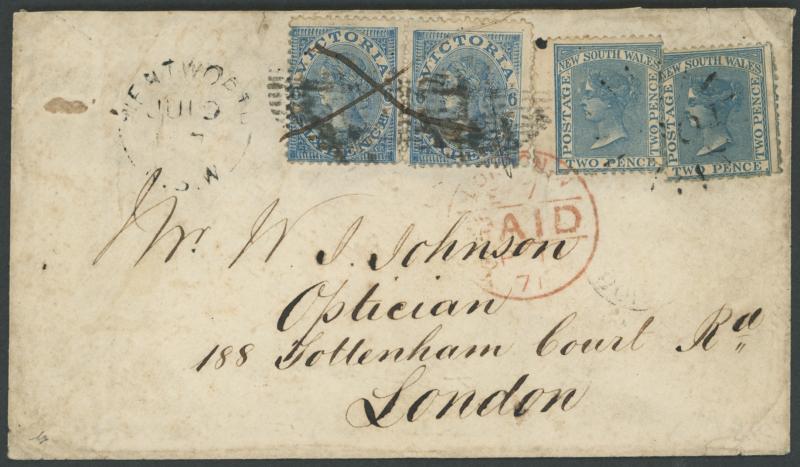 WENTWORTH
JU 19
N.S.W
VICTORIA
VICTORIA
6
NEW SOUTH WALES
POSTAGE
TWO PENCE
TWO PENCE
NEW SOUTH WALES
POSTAGE
TWO PENCE
TWO PENCE
LONDON
PAID
71
Mr. W J. Johnson
Optician
188 Tottenham Court Rd
London